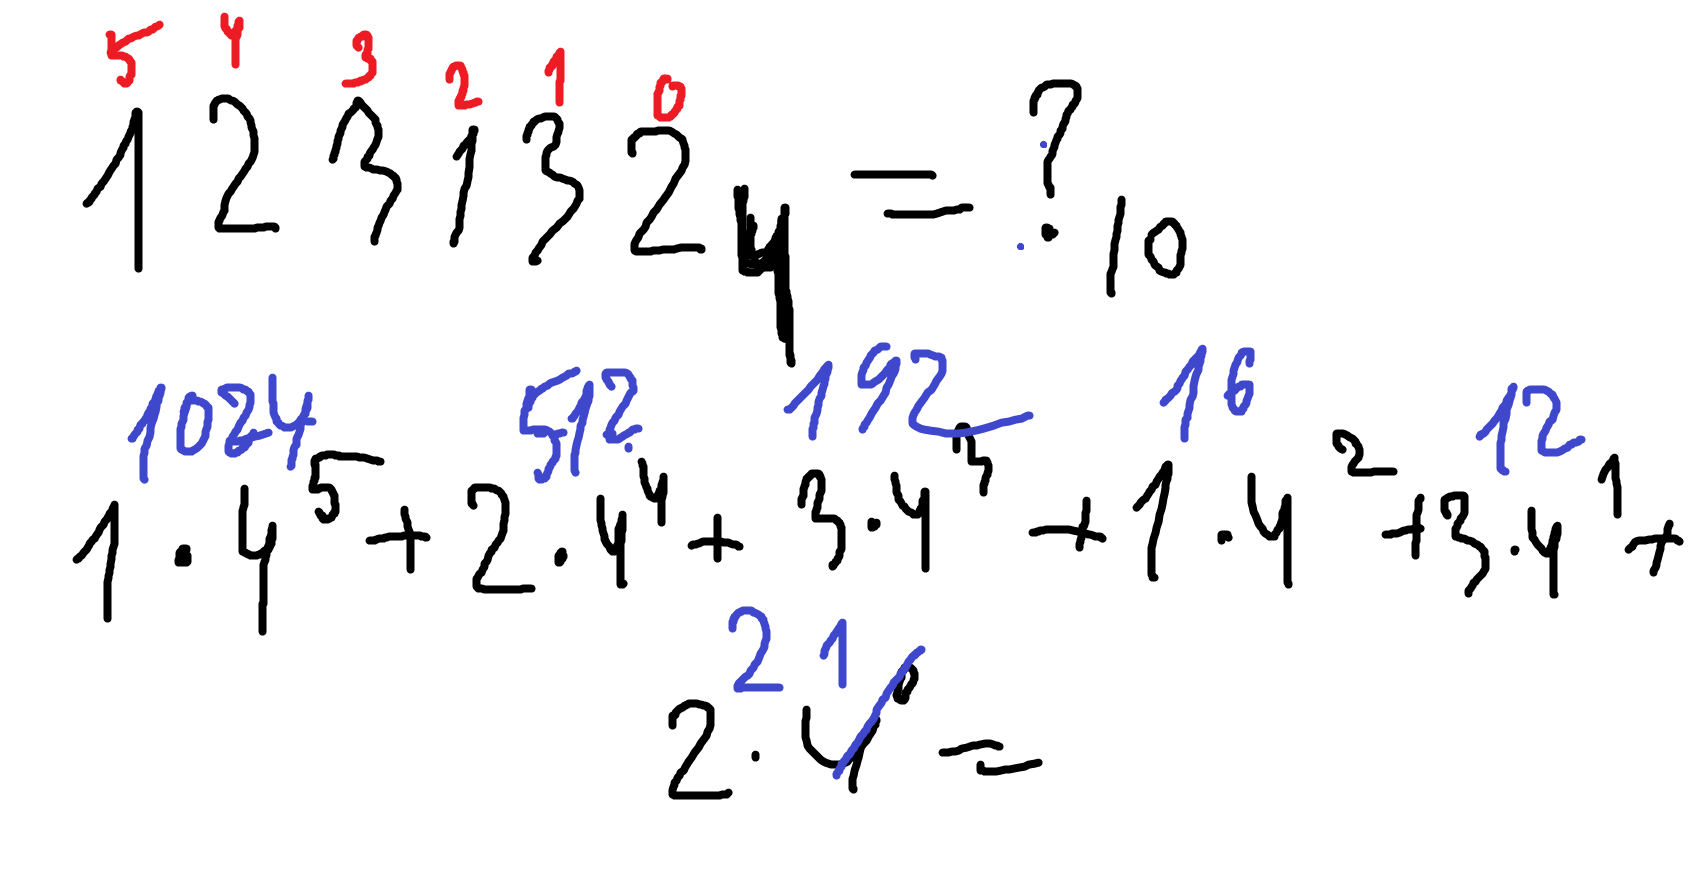 5 4 3 2 1 0
123132₄ = ?₁₀
1024 512 192 16 12
1·4⁵+2·4⁴+3·4³+1·4²+3·4¹+
2 1
2·4⁰=